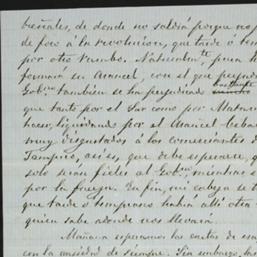 breñales, de donde no saldrá porque no p
de foco á la revolucion, que tarde ó tem
por otro rumbo. Naturalmte, para h
formará su Arancel, con el que perjudi
Gobno también se ha perjudicado bastante
que tanto por el Sur como por Matam
hacer, liquidando por el Arancel
muy disgustados á los comerciantes d
Tampico, así es, que debe esperarse, q
solo serán fieles al Gobno, mientras e
por la fuerza. En fin, mi cabeza se
que tarde ó temprano habrá allí otra
quien sabe adonde nos llevará.
Mañana esperamos las cartas de esa
con la ansiedad de siempre. Sin embargo, las